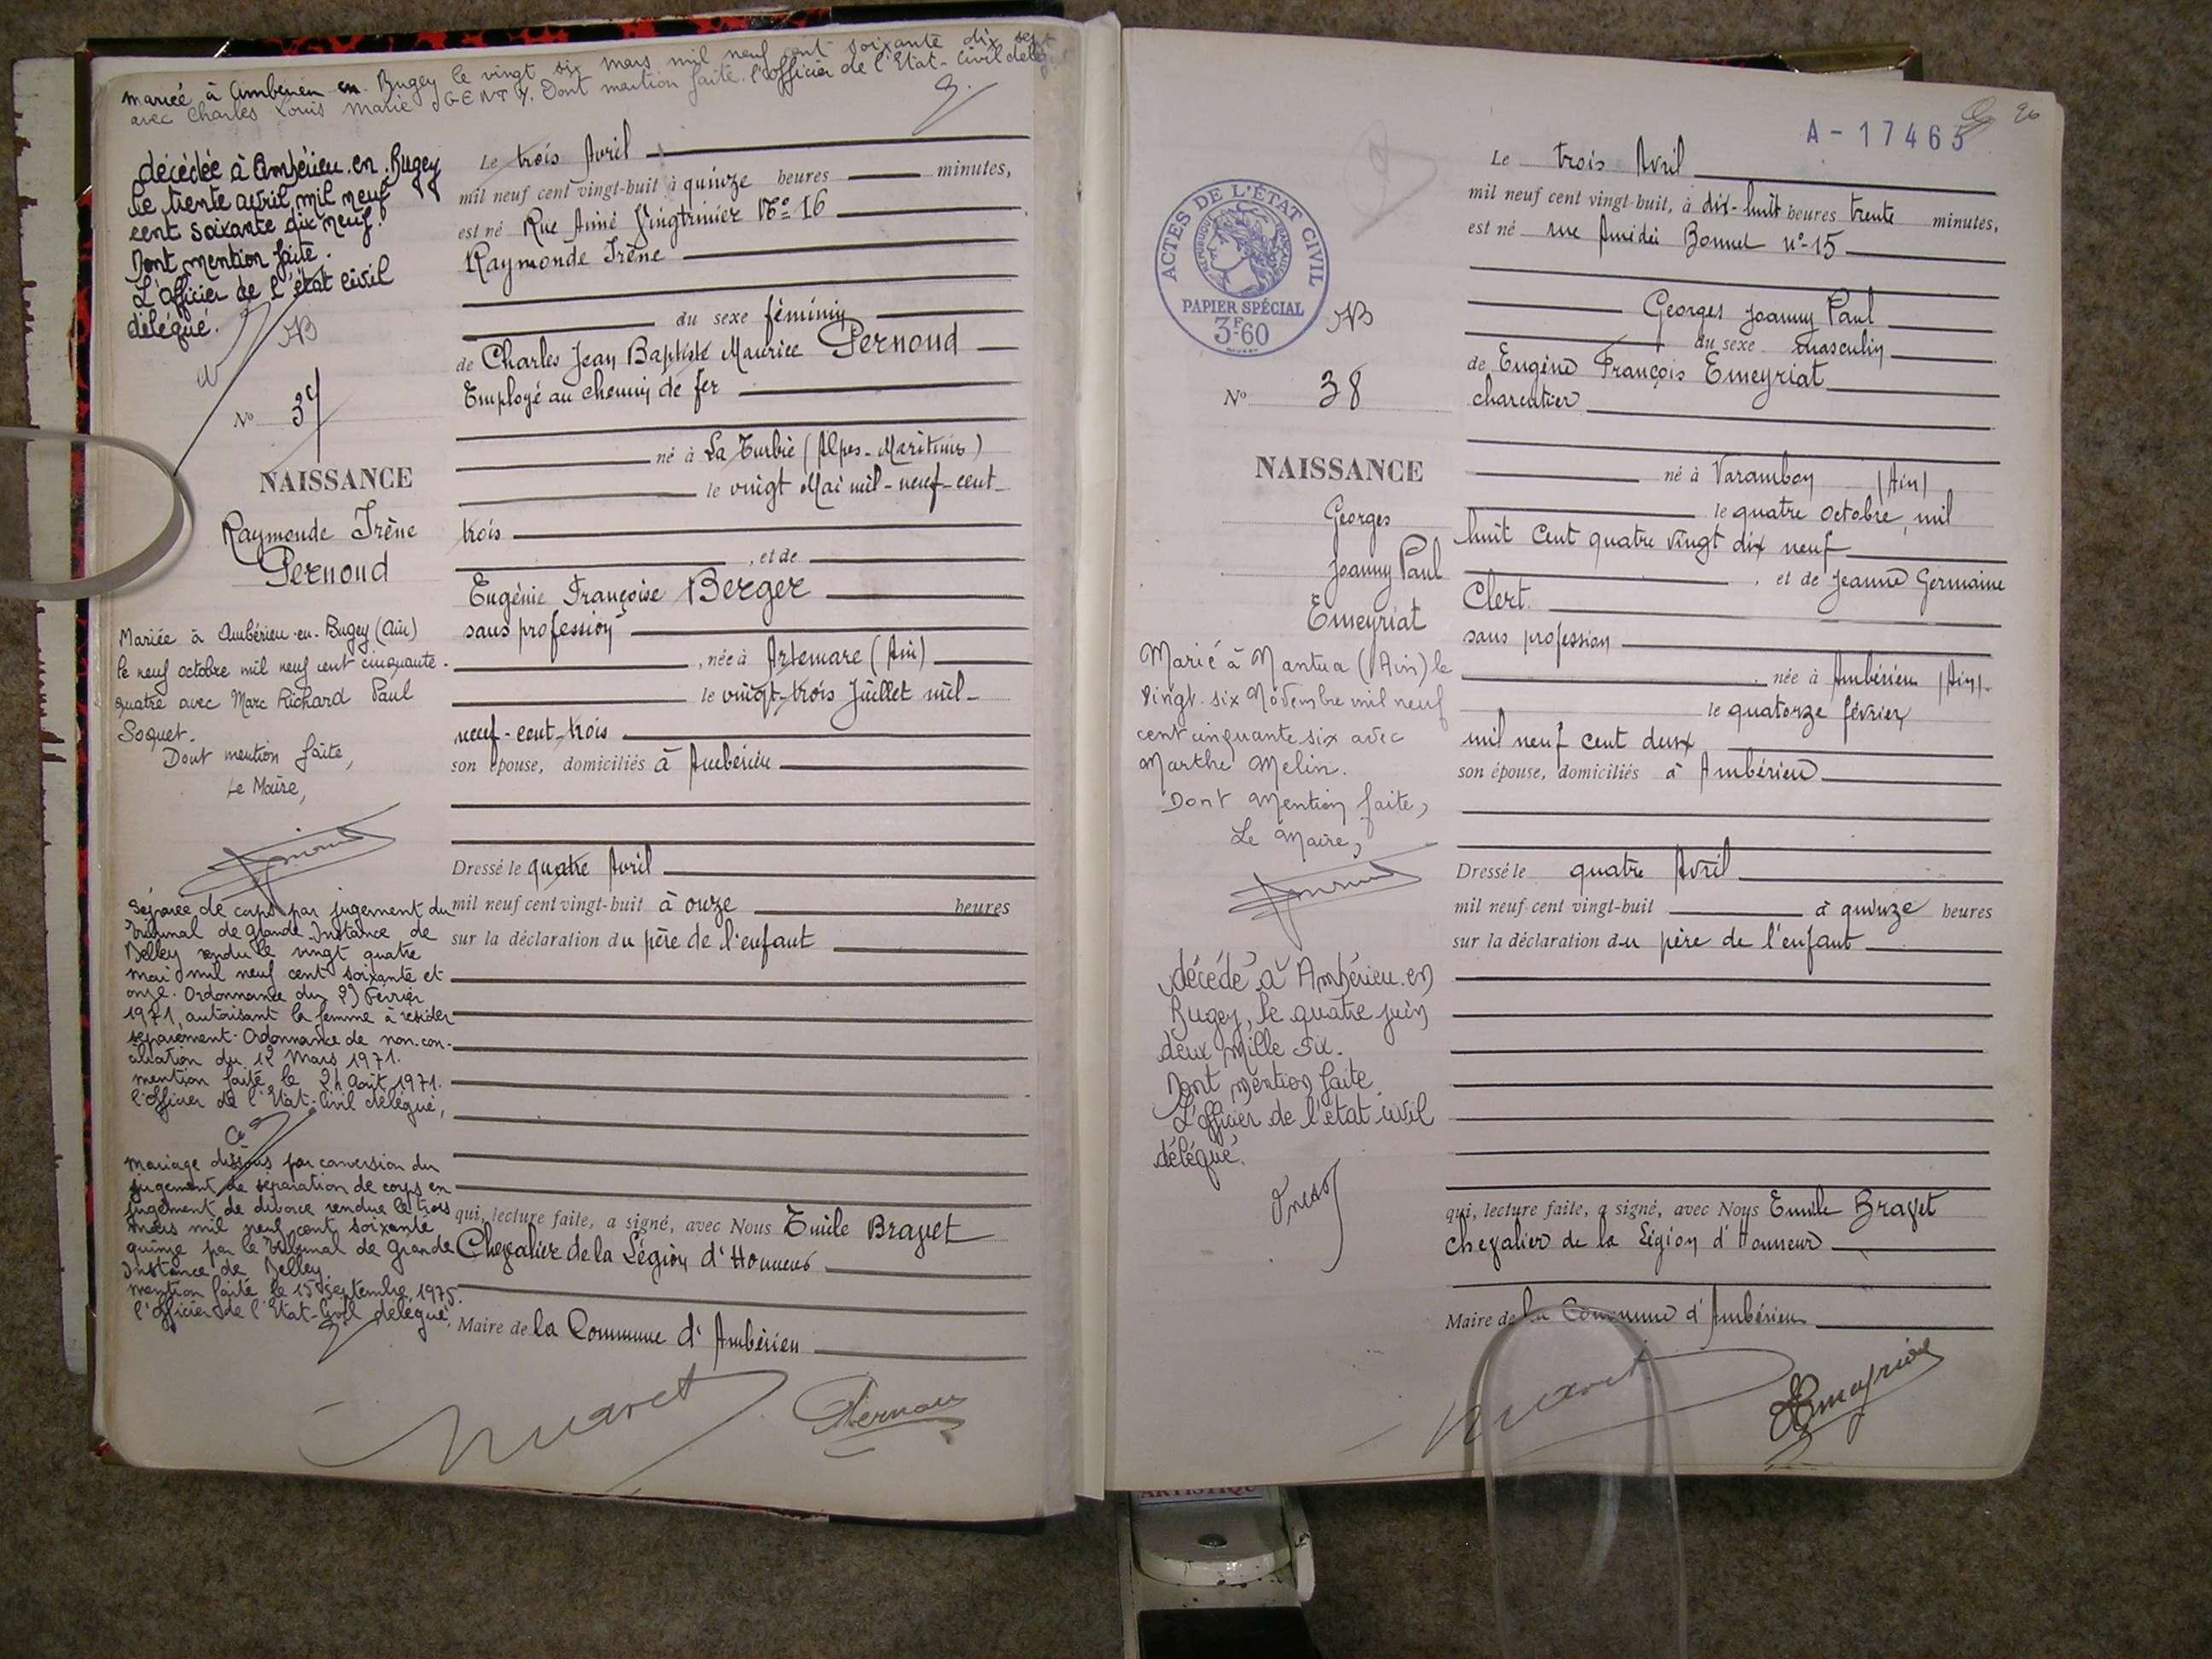 mariée à Ambérieu en Bugey le vingt six mars mil neuf cent soixante dix sept
avec Charles Louis Marie GENTY. Dont mention faite. l'officier de l'Etat-Civil délégué
décédée à Ambérieu-en-Bugey
le trente avril mil neuf
cent soixante dix neuf.
Dont mention faite.
L'officier de l'état civil
délégué.
NB
No 37
NAISSANCE
Raymonde Irène
Pernoud
Mariée à Ambérieu-en-Bugey (Ain)
le neuf octobre mil neuf cent cinquante-
quatre avec Marc Richard Paul
Soquet.
Dont mention faite,
Le Maire,
Séparée de corps par jugement du
Tribunal de Grande Instance de
Belley rendu le vingt quatre
mai mil neuf cent soixante et
onze. Ordonnance du Février
1971, autorisant la femme à résider
séparément. Ordonnance de non-con-
ciliation du 12 Mars 1971.
mention faite le 24 Août 1971.
l'officier de l'Etat-Civil délégué,
Mariage dissous par conversion du
jugement de séparation de corps en
jugement de divorce rendue le trois
mars mil neuf cent soixante
quinze par le Tribunal de Grande
Instance de Belley.
mention faite le 15 Septembre 1975.
l'officier de l'Etat-Civil délégué,
Le trois Avril
mil neuf cent vingt-huit à quinze heures minutes,
est né Rue Aimé Vingtrinier No 16
Raymonde Irène
du sexe féminin
de Charles Jean Baptiste Maurice Pernoud
Employé au chemin de fer
né à La Turbie (Alpes-Maritimes)
le vingt Mai mil-neuf-cent-
trois
, et de
Eugénie Françoise Berger
sans profession
, née à Artemare (Ain)
le vingt-trois Juillet mil-
neuf-cent-trois
son épouse, domiciliés à Ambérieu
Dressé le quatre Avril
mil neuf cent vingt-huit à onze heures
sur la déclaration du père de l'enfant
qui, lecture faite, a signé, avec Nous Emile Bravet
Chevalier de la Légion d'Honneur
Maire de la Commune d'Ambérieu
A-17465
ACTES DE L'ÉTAT CIVIL
RÉPUBLIQUE FRANÇAISE
PAPIER SPÉCIAL
3F.60
NB
No 38
NAISSANCE
Georges
Joanny Paul
Emeyriat
Marié à Nantua (Ain) le
vingt-six Novembre mil neuf
cent cinquante six avec
Marthe Melin.
Dont Mention faite,
Le Maire,
décédé à Ambérieu-en
Bugey, le quatre juin
deux mille six.
Dont mention faite
L'officier de l'état civil
délégué.
Le trois Avril
mil neuf cent vingt-huit, à dix-huit heures trente minutes,
est né rue Amédée Bonnet no 15
Georges Joanny Paul
du sexe masculin
de Eugène François Emeyriat
charcutier
né à Varambon (Ain)
le quatre octobre mil
huit cent quatre vingt dix neuf
, et de Jeanne Germaine
Clert.
sans profession
, née à Ambérieu (Ain).
le quatorze février
mil neuf cent deux
son épouse, domiciliés à Ambérieu
Dressé le quatre Avril
mil neuf cent vingt-huit à quinze heures
sur la déclaration du père de l'enfant
qui, lecture faite, a signé, avec Nous Emile Bravet
Chevalier de la Légion d'Honneur
Maire de la Commune d'Ambérieu